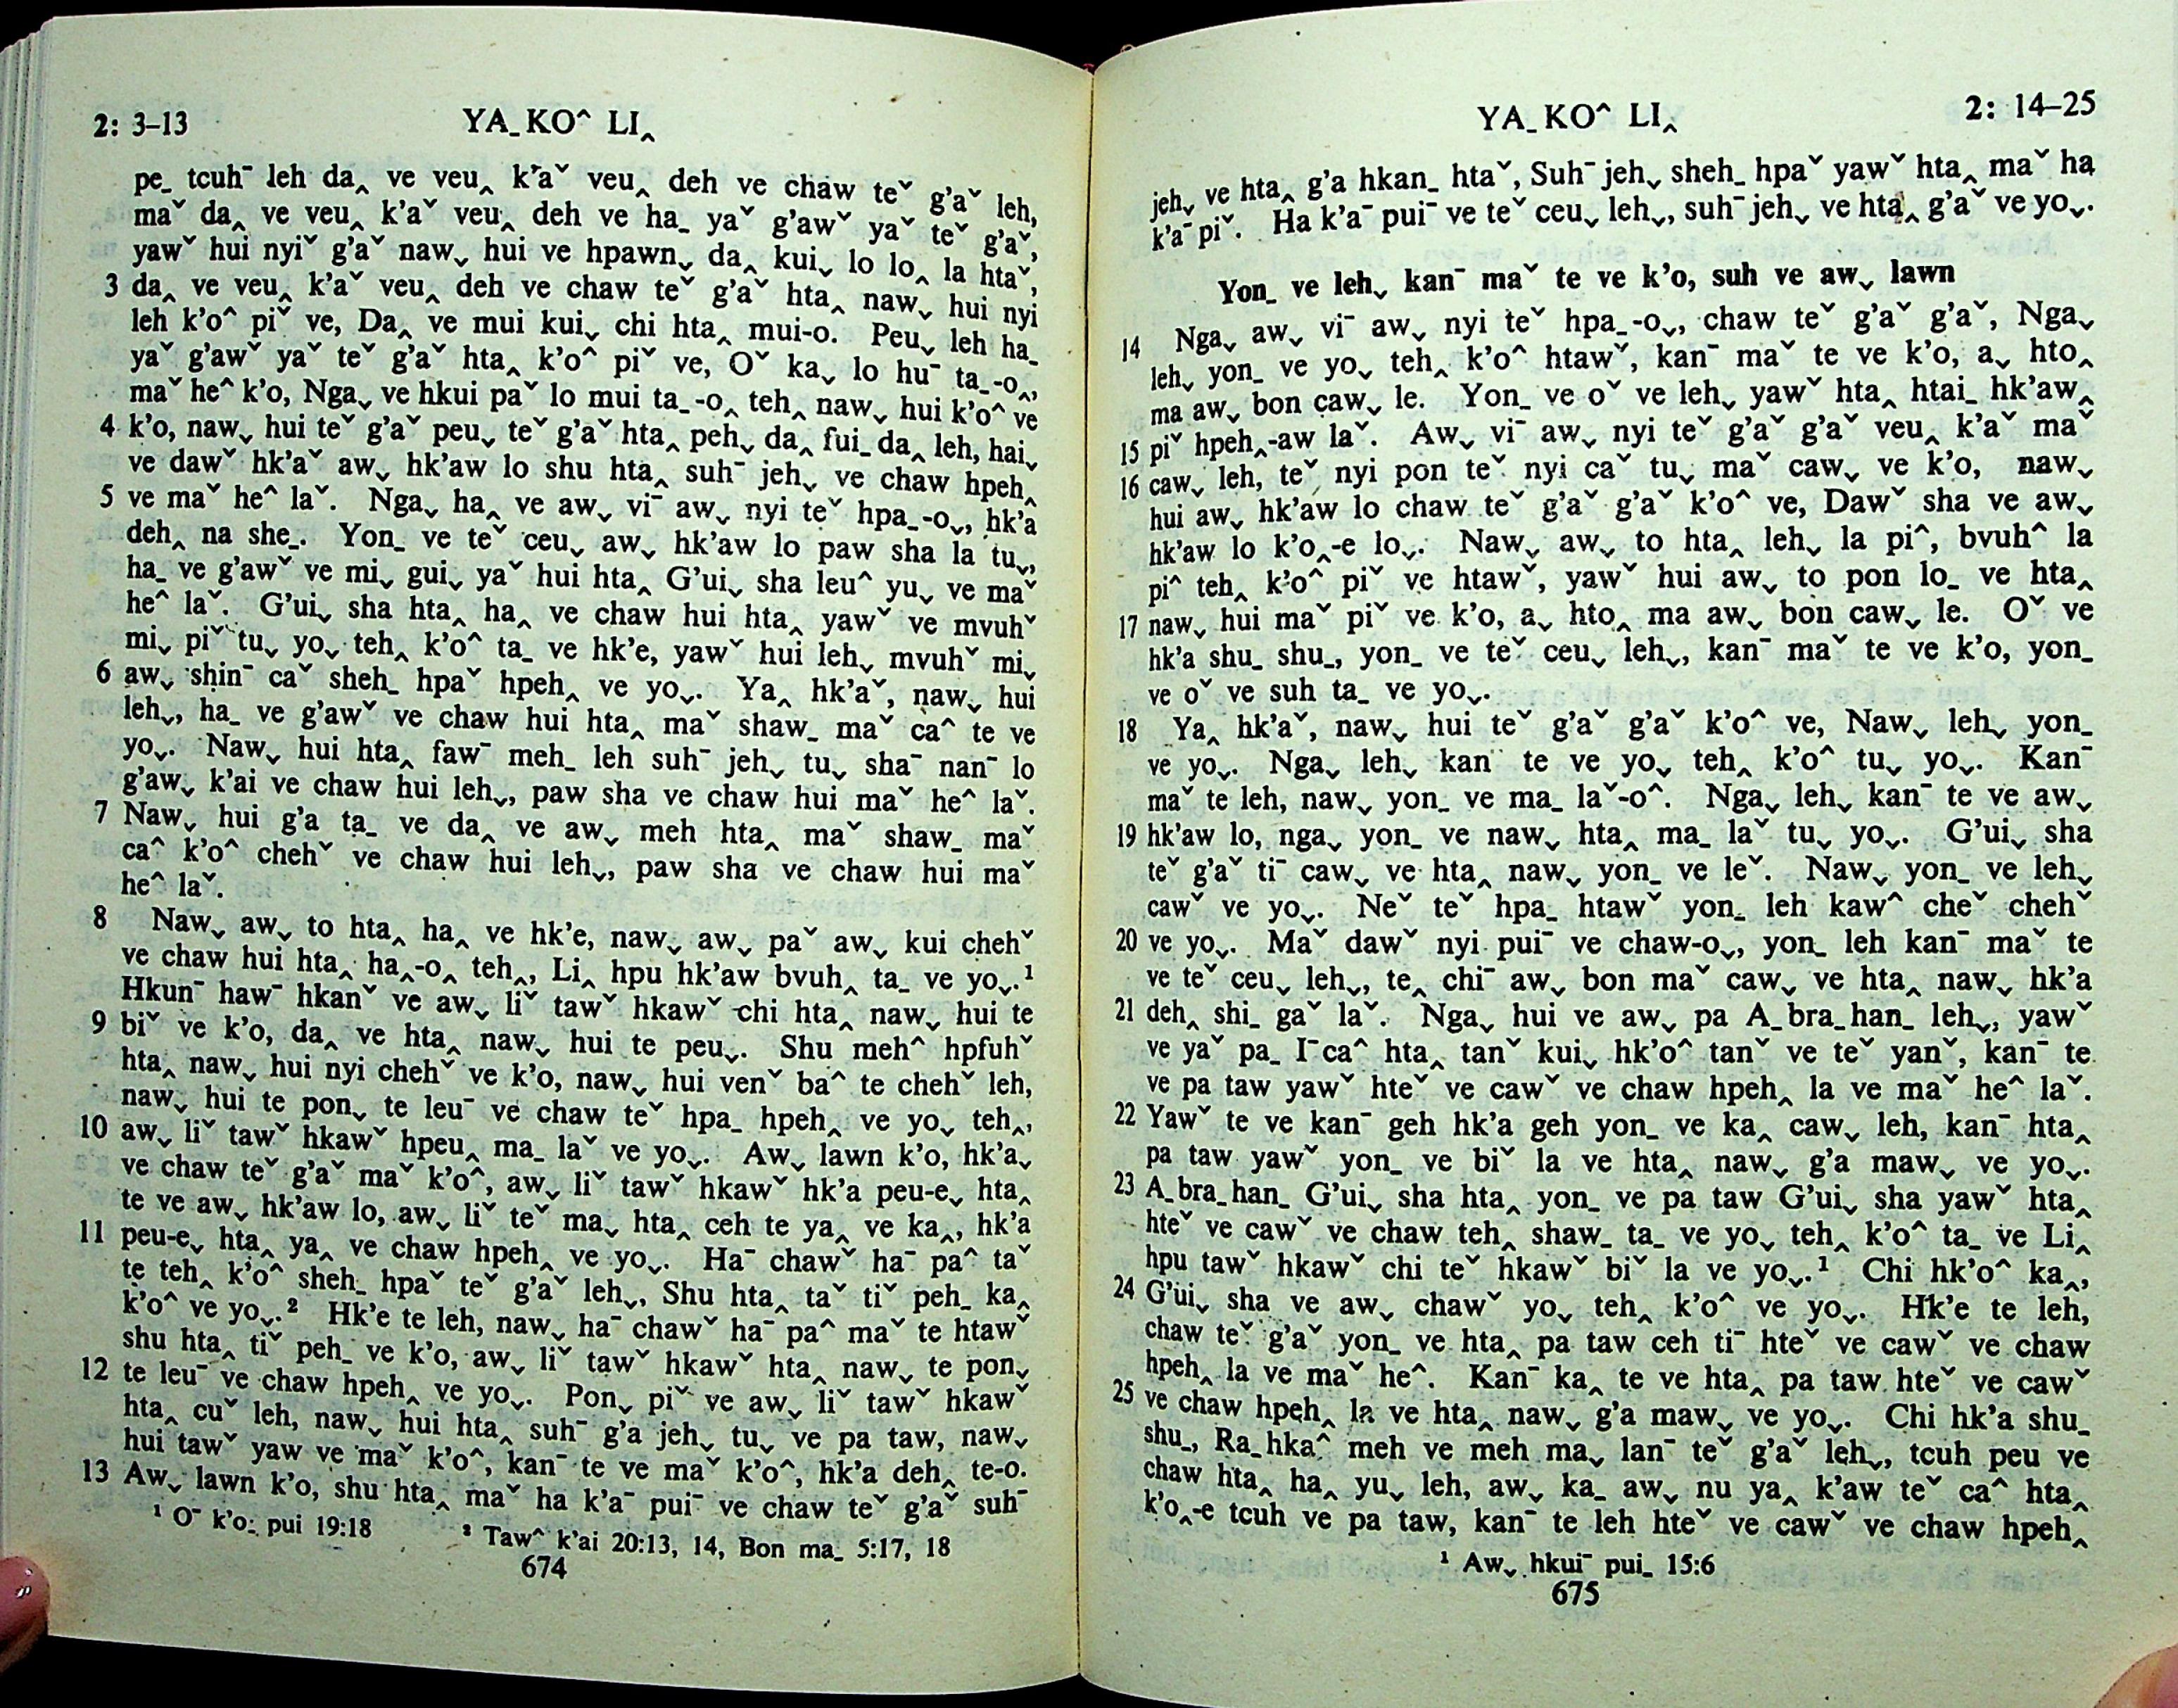 2: 3–13
YAˍ KOˆ LI‸
peˍ tcuhˉ leh da‸ ve veu‸ k’aˇ veu‸ deh ve chaw teˇ g’aˇ leh,
maˇ da‸ ve veu‸ k’aˇ veu‸ deh ve haˍ yaˇ g’awˇ yaˇ teˇ g’aˇ,
yawˇ hui nyiˇ g’aˇ naw˯ hui ve hpawn˯ da‸ kui˯ lo lo‸ la htaˇ,
3 da‸ ve veu‸ k’aˇ veu‸ deh ve chaw teˇ g’aˇ hta‸ naw˯ hui nyi
leh k’oˆ piˇ ve, Da‸ ve mui kui˯ chi hta‸ mui-o. Peu˯ leh haˍ
yaˇ g’awˇ yaˇ teˇ g’aˇ hta‸ k’oˆ piˇ ve, Oˇ ka˯ lo huˉ taˍ-o‸,
maˇ heˆ k’o, Nga˯ ve hkui paˇ lo mui taˍ-o‸ teh‸ naw˯ hui k’oˆ ve
4 k’o, naw˯ hui teˇ g’aˇ peu˯ teˇ g’aˇ hta‸ peh˯ da‸ fuiˍ da‸ leh, hai˯
ve dawˇ hk’aˇ aw˯ hk’aw lo shu hta‸ suhˉ jeh˯ ve chaw hpeh‸
5 ve maˇ heˆ laˇ. Nga˯ ha‸ ve aw˯ viˉ aw˯ nyi teˇ hpaˍ-o˯, hk’a
deh‸ na sheˍ. Yonˍ ve teˇ ceu˯ aw˯ hk’aw lo paw sha la tu˯,
haˍ ve g’awˇ ve mi˯ gui˯ yaˇ hui hta‸ G’ui˯ sha leuˆ yu˯ ve maˇ
heˆ laˇ. G’ui˯ sha hta‸ ha‸ ve chaw hui hta‸ yawˇ ve mvuhˇ
mi˯ piˇ tu˯ yo˯ teh‸ k’oˆ taˍ ve hk’e, yawˇ hui leh˯ mvuhˇ mi˯
6 aw˯ shinˉ caˇ shehˍ hpaˇ hpeh‸ ve yo˯. Ya‸ hk’aˇ, naw˯ hui
leh˯, haˍ ve g’awˇ ve chaw hui hta‸ maˇ shawˍ maˇ caˆ te ve
yo˯. Naw˯ hui hta‸ fawˉ mehˍ leh suhˉ jeh˯ tu˯ shaˉ nanˉ lo
g’aw˯ k’ai ve chaw hui leh˯, paw sha ve chaw hui maˇ heˆ laˇ.
7 Naw˯ hui g’a taˍ ve da‸ ve aw˯ meh hta‸ maˇ shawˍ maˇ
caˆ k’oˆ chehˇ ve chaw hui leh˯, paw sha ve chaw hui maˇ
heˆ laˇ.
8 Naw˯ aw˯ to hta‸ ha‸ ve hk’e, naw˯ aw˯ paˇ aw˯ kui chehˇ
ve chaw hui hta‸ ha‸-o‸ teh‸, Li‸ hpu hk’aw bvuh‸ taˍ ve yo˯.¹
Hkunˉ hawˉ hkanˇ ve aw˯ liˇ tawˇ hkawˇ chi hta‸ naw˯ hui te
9 biˇ ve k’o, da‸ ve hta‸ naw˯ hui te peu˯. Shu mehˆ hpfuhˇ
hta‸ naw˯ hui nyi chehˇ ve k’o, naw˯ hui venˇ baˆ te chehˇ leh,
naw˯ hui te pon˯ te leuˉ ve chaw teˇ hpaˍ hpeh‸ ve yo˯ teh‸,
10 aw˯ liˇ tawˇ hkawˇ hpeu‸ maˍ laˇ ve yo˯. Aw˯ lawn k’o, hk’a˯
ve chaw teˇ g’aˇ maˇ k’oˆ, aw˯ liˇ tawˇ hkawˇ hk’a peu-e˯ hta‸
te ve aw˯ hk’aw lo, aw˯ liˇ teˇ ma˯ hta‸ ceh te ya‸ ve ka‸, hk’a
11 peu-e˯ hta‸ ya‸ ve chaw hpeh‸ ve yo˯. Haˉ chawˇ haˉ paˆ taˇ
te teh‸ k’oˆ shehˍ hpaˇ teˇ g’aˇ leh˯, Shu hta‸ taˇ tiˇ pehˍ ka‸
k’oˆ ve yo˯.² Hk’e te leh, naw˯ haˉ chawˇ haˉ paˆ maˇ te htawˇ
shu hta‸ tiˇ pehˍ ve k’o, aw˯ liˇ tawˇ hkawˇ hta‸ naw˯ te pon˯
12 te leuˉ ve chaw hpeh‸ ve yo˯. Pon˯ piˇ ve aw˯ liˇ tawˇ hkawˇ
hta‸ cuˇ leh, naw˯ hui hta‸ suhˉ g’a jeh˯ tu˯ ve pa taw, naw˯
hui tawˇ yaw ve maˇ k’oˆ, kanˉ te ve maˇ k’oˆ, hk’a deh‸ te-o.
13 Aw˯ lawn k’o, shu hta‸ maˇ ha k’aˉ puiˉ ve chaw teˇ g’aˇ suhˉ
¹ Oˉ k’oˍ pui 19:18 ² Tawˆ k’ai 20:13, 14, Bon maˍ 5:17, 18
674
YAˍ KOˆ LI‸
2: 14–25
jeh˯ ve hta‸ g’a hkanˍ htaˇ, Suhˉ jeh˯ shehˍ hpaˇ yawˇ hta‸ maˇ ha
k’aˉ piˇ. Ha k’aˉ puiˉ ve teˇ ceu˯ leh˯, suhˉ jeh˯ ve hta‸ g’aˇ ve yo˯.
Yonˍ ve leh˯ kanˉ maˇ te ve k’o, suh ve aw˯ lawn
14 Nga˯ aw˯ viˉ aw˯ nyi teˇ hpaˍ-o˯, chaw teˇ g’aˇ g’aˇ, Nga˯
leh˯ yonˍ ve yo˯ teh‸ k’oˆ htawˇ, kanˉ maˇ te ve k’o, a˯ hto‸
ma aw˯ bon caw˯ le. Yonˍ ve oˇ ve leh˯ yawˇ hta‸ htaiˍ hk’aw‸
15 piˇ hpeh‸-aw laˇ. Aw˯ viˉ aw˯ nyi teˇ g’aˇ g’aˇ veu‸ k’aˇ maˇ
16 caw˯ leh, teˇ nyi pon teˇ nyi caˇ tu˯ maˇ caw˯ ve k’o, naw˯
hui aw˯ hk’aw lo chaw teˇ g’aˇ g’aˇ k’oˆ ve, Dawˇ sha ve aw˯
hk’aw lo k’o‸-e lo˯. Naw˯ aw˯ to hta‸ leh˯ la piˆ, bvuhˆ la
piˆ teh‸ k’oˆ piˇ ve htawˇ, yawˇ hui aw˯ to pon loˍ ve hta‸
17 naw˯ hui maˇ piˇ ve k’o, a˯ hto‸ ma aw˯ bon caw˯ le. Oˇ ve
hk’a shuˍ shuˍ, yonˍ ve teˇ ceu˯ leh˯, kanˉ maˇ te ve k’o, yonˍ
ve oˇ ve suh taˍ ve yo˯.
18 Ya‸ hk’aˇ, naw˯ hui teˇ g’aˇ g’aˇ k’oˆ ve, Naw˯ leh˯ yonˍ
ve yo˯. Nga˯ leh˯ kanˉ te ve yo˯ teh‸ k’oˆ tu˯ yo˯. Kanˉ
maˇ te leh, naw˯ yonˍ ve maˍ laˇ-oˆ. Nga˯ leh˯ kanˉ te ve aw˯
19 hk’aw lo, nga˯ yonˍ ve naw˯ hta‸ maˍ laˇ tu˯ yo˯. G’ui˯ sha
teˇ g’aˇ tiˉ caw˯ ve hta‸ naw˯ yonˍ ve leˇ. Naw˯ yonˍ ve leh˯
cawˇ ve yo˯. Neˇ teˇ hpaˍ htawˇ yonˍ leh kawˆ cheˇ chehˇ
20 ve yo˯. Maˇ dawˇ nyi puiˉ ve chaw-o˯, yonˍ leh kanˉ maˇ te
ve teˇ ceu˯ leh˯, te‸ chiˉ aw˯ bon maˇ caw˯ ve hta‸ naw˯ hk’a
21 deh‸ shiˍ gaˇ laˇ. Nga˯ hui ve aw˯ pa Aˍbraˍhanˍ leh˯, yawˇ
ve yaˇ paˍ Iˉcaˆ hta‸ tanˇ kui˯ hk’oˆ tanˇ ve teˇ yanˇ, kanˉ te
ve pa taw yawˇ hteˇ ve cawˇ ve chaw hpeh‸ la ve maˇ heˆ laˇ.
22 Yawˇ te ve kanˉ geh hk’a geh yonˍ ve ka‸ caw˯ leh, kanˉ hta‸
pa taw yawˇ yonˍ ve biˇ la ve hta‸ naw˯ g’a maw˯ ve yo˯.
23 Aˍbraˍhanˍ G’ui˯ sha hta‸ yonˍ ve pa taw G’ui˯ sha yawˇ hta‸
hteˇ ve cawˇ ve chaw teh‸ shawˍ taˍ ve yo˯ teh‸ k’oˆ taˍ ve Li‸
hpu tawˇ hkawˇ chi teˇ hkawˇ biˇ la ve yo˯.¹ Chi hk’oˆ ka‸,
24 G’ui˯ sha ve aw˯ chawˇ yo˯ teh‸ k’oˆ ve yo˯. Hk’e te leh,
chaw teˇ g’aˇ yonˍ ve hta‸ pa taw ceh tiˉ hteˇ ve cawˇ ve chaw
hpeh‸ la ve maˇ heˆ. Kanˉ ka‸ te ve hta‸ pa taw hteˇ ve cawˇ
25 ve chaw hpeh‸ la ve hta‸ naw˯ g’a maw˯ ve yo˯. Chi hk’a shuˍ
shuˍ, Raˍhkaˆ meh ve meh ma˯ lanˉ teˇ g’aˇ leh˯, tcuh peu ve
chaw hta‸ ha‸ yu˯ leh, aw˯ kaˍ aw˯ nu ya‸ k’aw teˇ caˆ hta‸
k’o‸-e tcuh ve pa taw, kanˉ te leh hteˇ ve cawˇ ve chaw hpeh‸
¹ Aw˯ hkuiˉ puiˍ 15:6
675